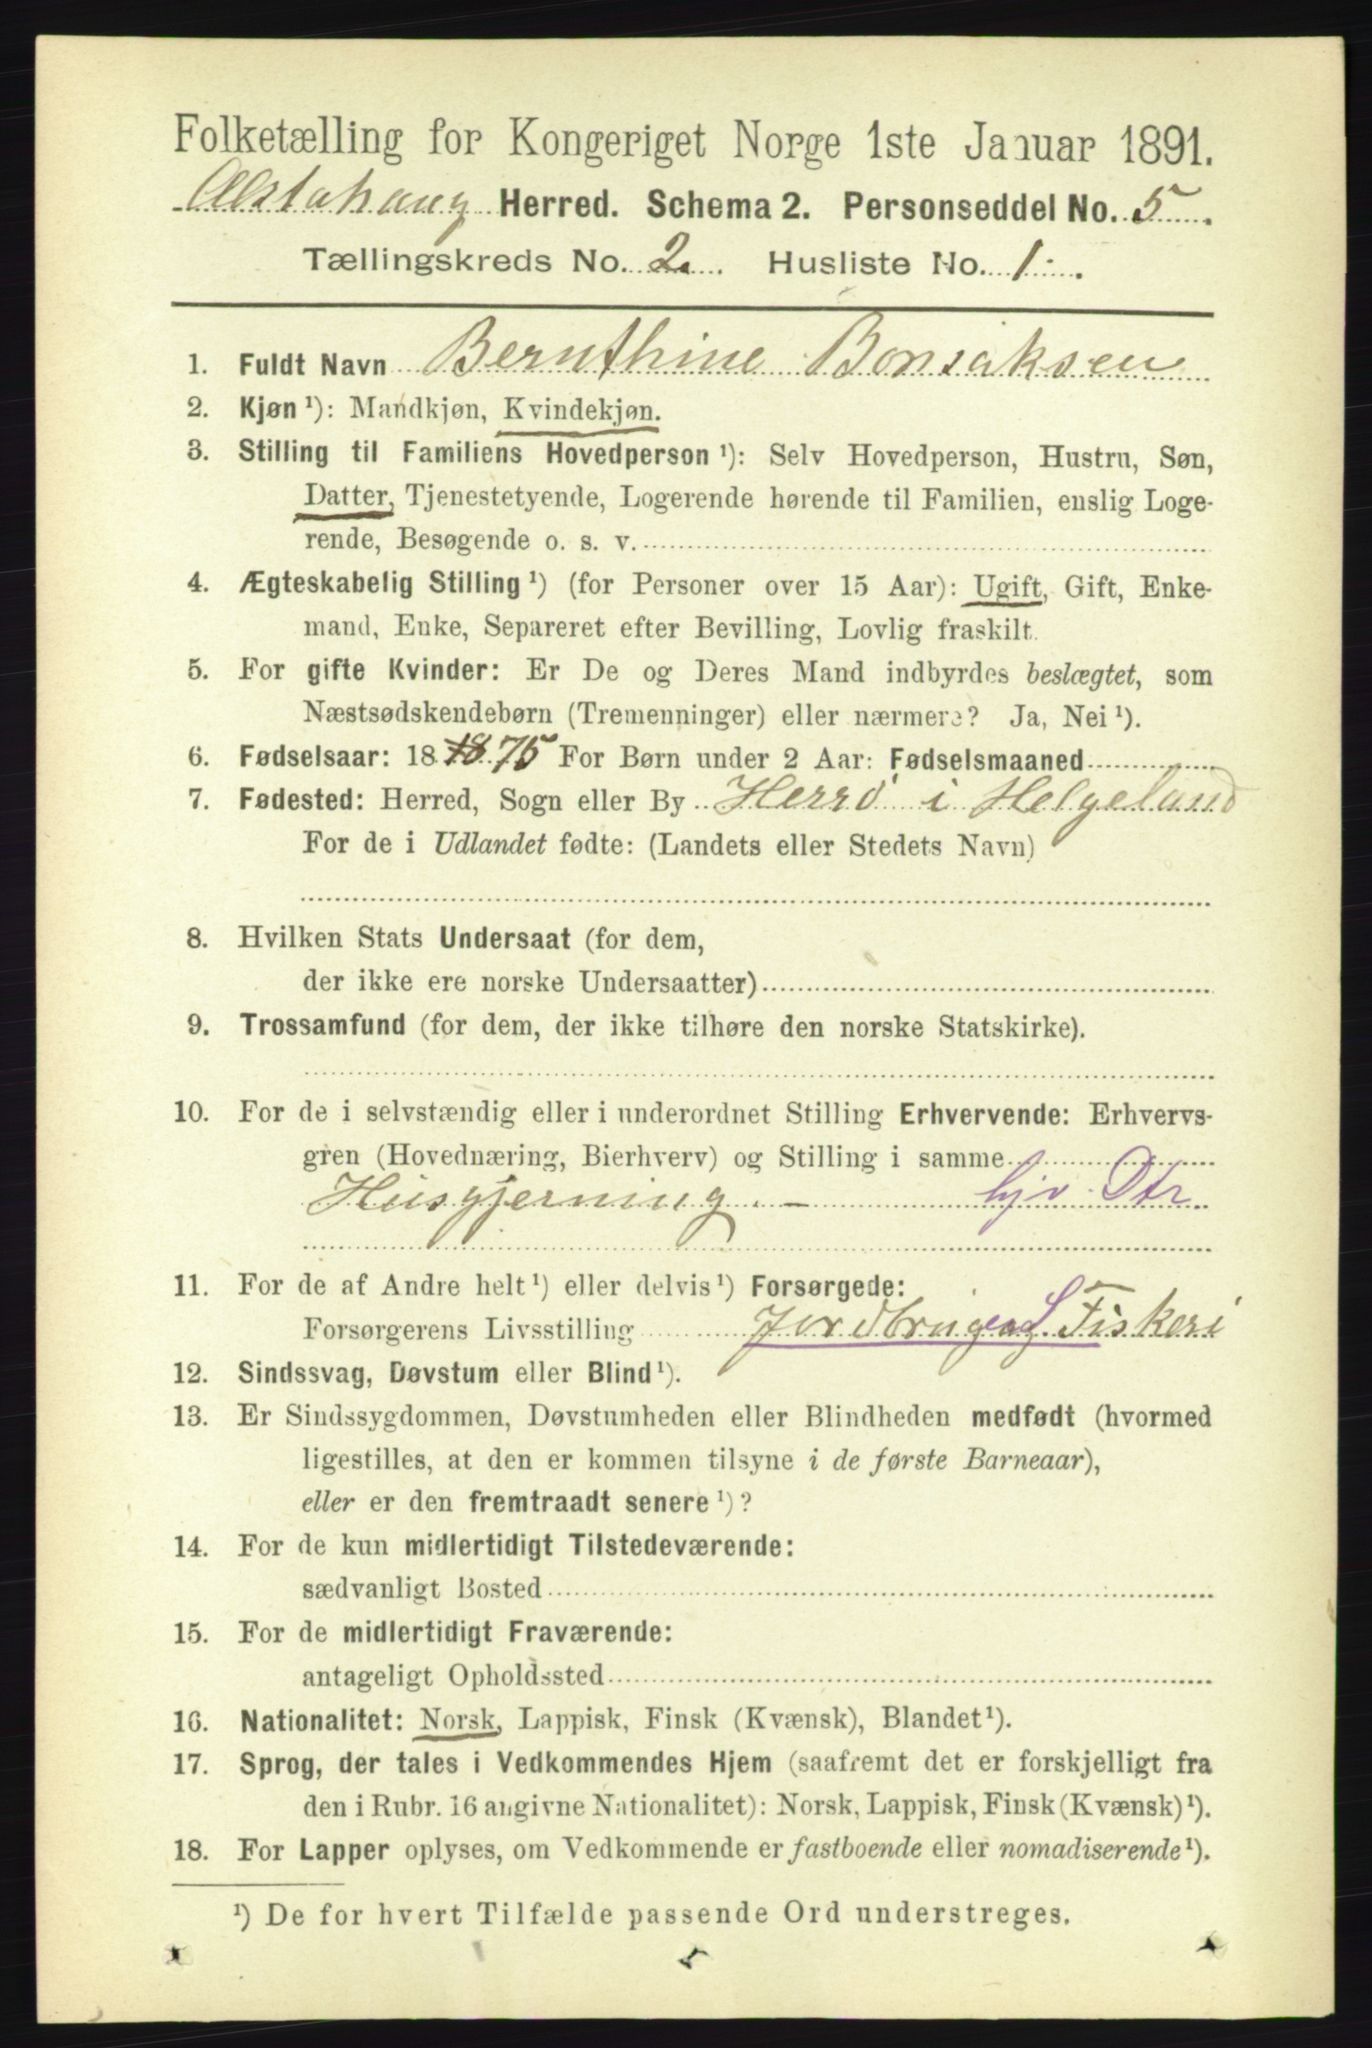 Folketælling for Kongeriget Norge 1ste Januar 1891.
Alstahaug Herred. Schema 2. Personseddel No. 5
Tællingskreds No. 2. Husliste No. 1.
1. Fuldt Navn Bernthine Bonsaksen
2. Kjøn ¹): Mandkjøn, Kvindekjøn.
3. Stilling til Familiens Hovedperson ¹): Selv Hovedperson, Hustru, Søn,
Datter, Tjenestetyende, Logerende hørende til Familien, enslig Loge-
rende, Besøgende o. s. v.
4. Ægteskabelig Stilling ¹) (for Personer over 15 Aar): Ugift, Gift, Enke-
mand, Enke, Separeret efter Bevilling, Lovlig fraskilt.
5. For gifte Kvinder: Er De og Deres Mand indbyrdes beslægtet, som
Næstsødskendebørn (Tremenninger) eller nærmere? Ja, Nei ¹).
6. Fødselsaar: 18 18 75 For Børn under 2 Aar: Fødselsmaaned
7. Fødested: Herred, Sogn eller By Herrø i Helgeland
For de i Udlandet fødte: (Landets eller Stedets Navn)
8. Hvilken Stats Undersaat (for dem,
der ikke ere norske Undersaatter)
9. Trossamfund (for dem, der ikke tilhøre den norske Statskirke).
10. For de i selvstændig eller i underordnet Stilling Erhvervende: Erhvervs-
gren (Hovednæring, Bierhverv) og Stilling i samme
Husgjerning. - hjv. Dtr
11. For de af Andre helt ¹) eller delvis ¹) Forsørgede:
Forsørgerens Livsstilling Jordbrug og S. Fiskeri
12. Sindssvag, Døvstum eller Blind ¹).
13. Er Sindssygdommen, Døvstumheden eller Blindheden medfødt (hvormed
ligestilles, at den er kommen tilsyne i de første Barneaar),
eller er den fremtraadt senere ¹)?
14. For de kun midlertidigt Tilstedeværende:
sædvanligt Bosted
15. For de midlertidigt Fraværende:
antageligt Opholdssted
16. Nationalitet: Norsk, Lappisk, Finsk (Kvænsk), Blandet ¹).
17. Sprog, der tales i Vedkommendes Hjem (saafremt det er forskjelligt fra
den i Rubr. 16 angivne Nationalitet): Norsk, Lappisk, Finsk (Kvænsk) ¹).
18. For Lapper oplyses, om Vedkommende er fastboende eller nomadiserende ¹).
¹) De for hvert Tilfælde passende Ord understreges.